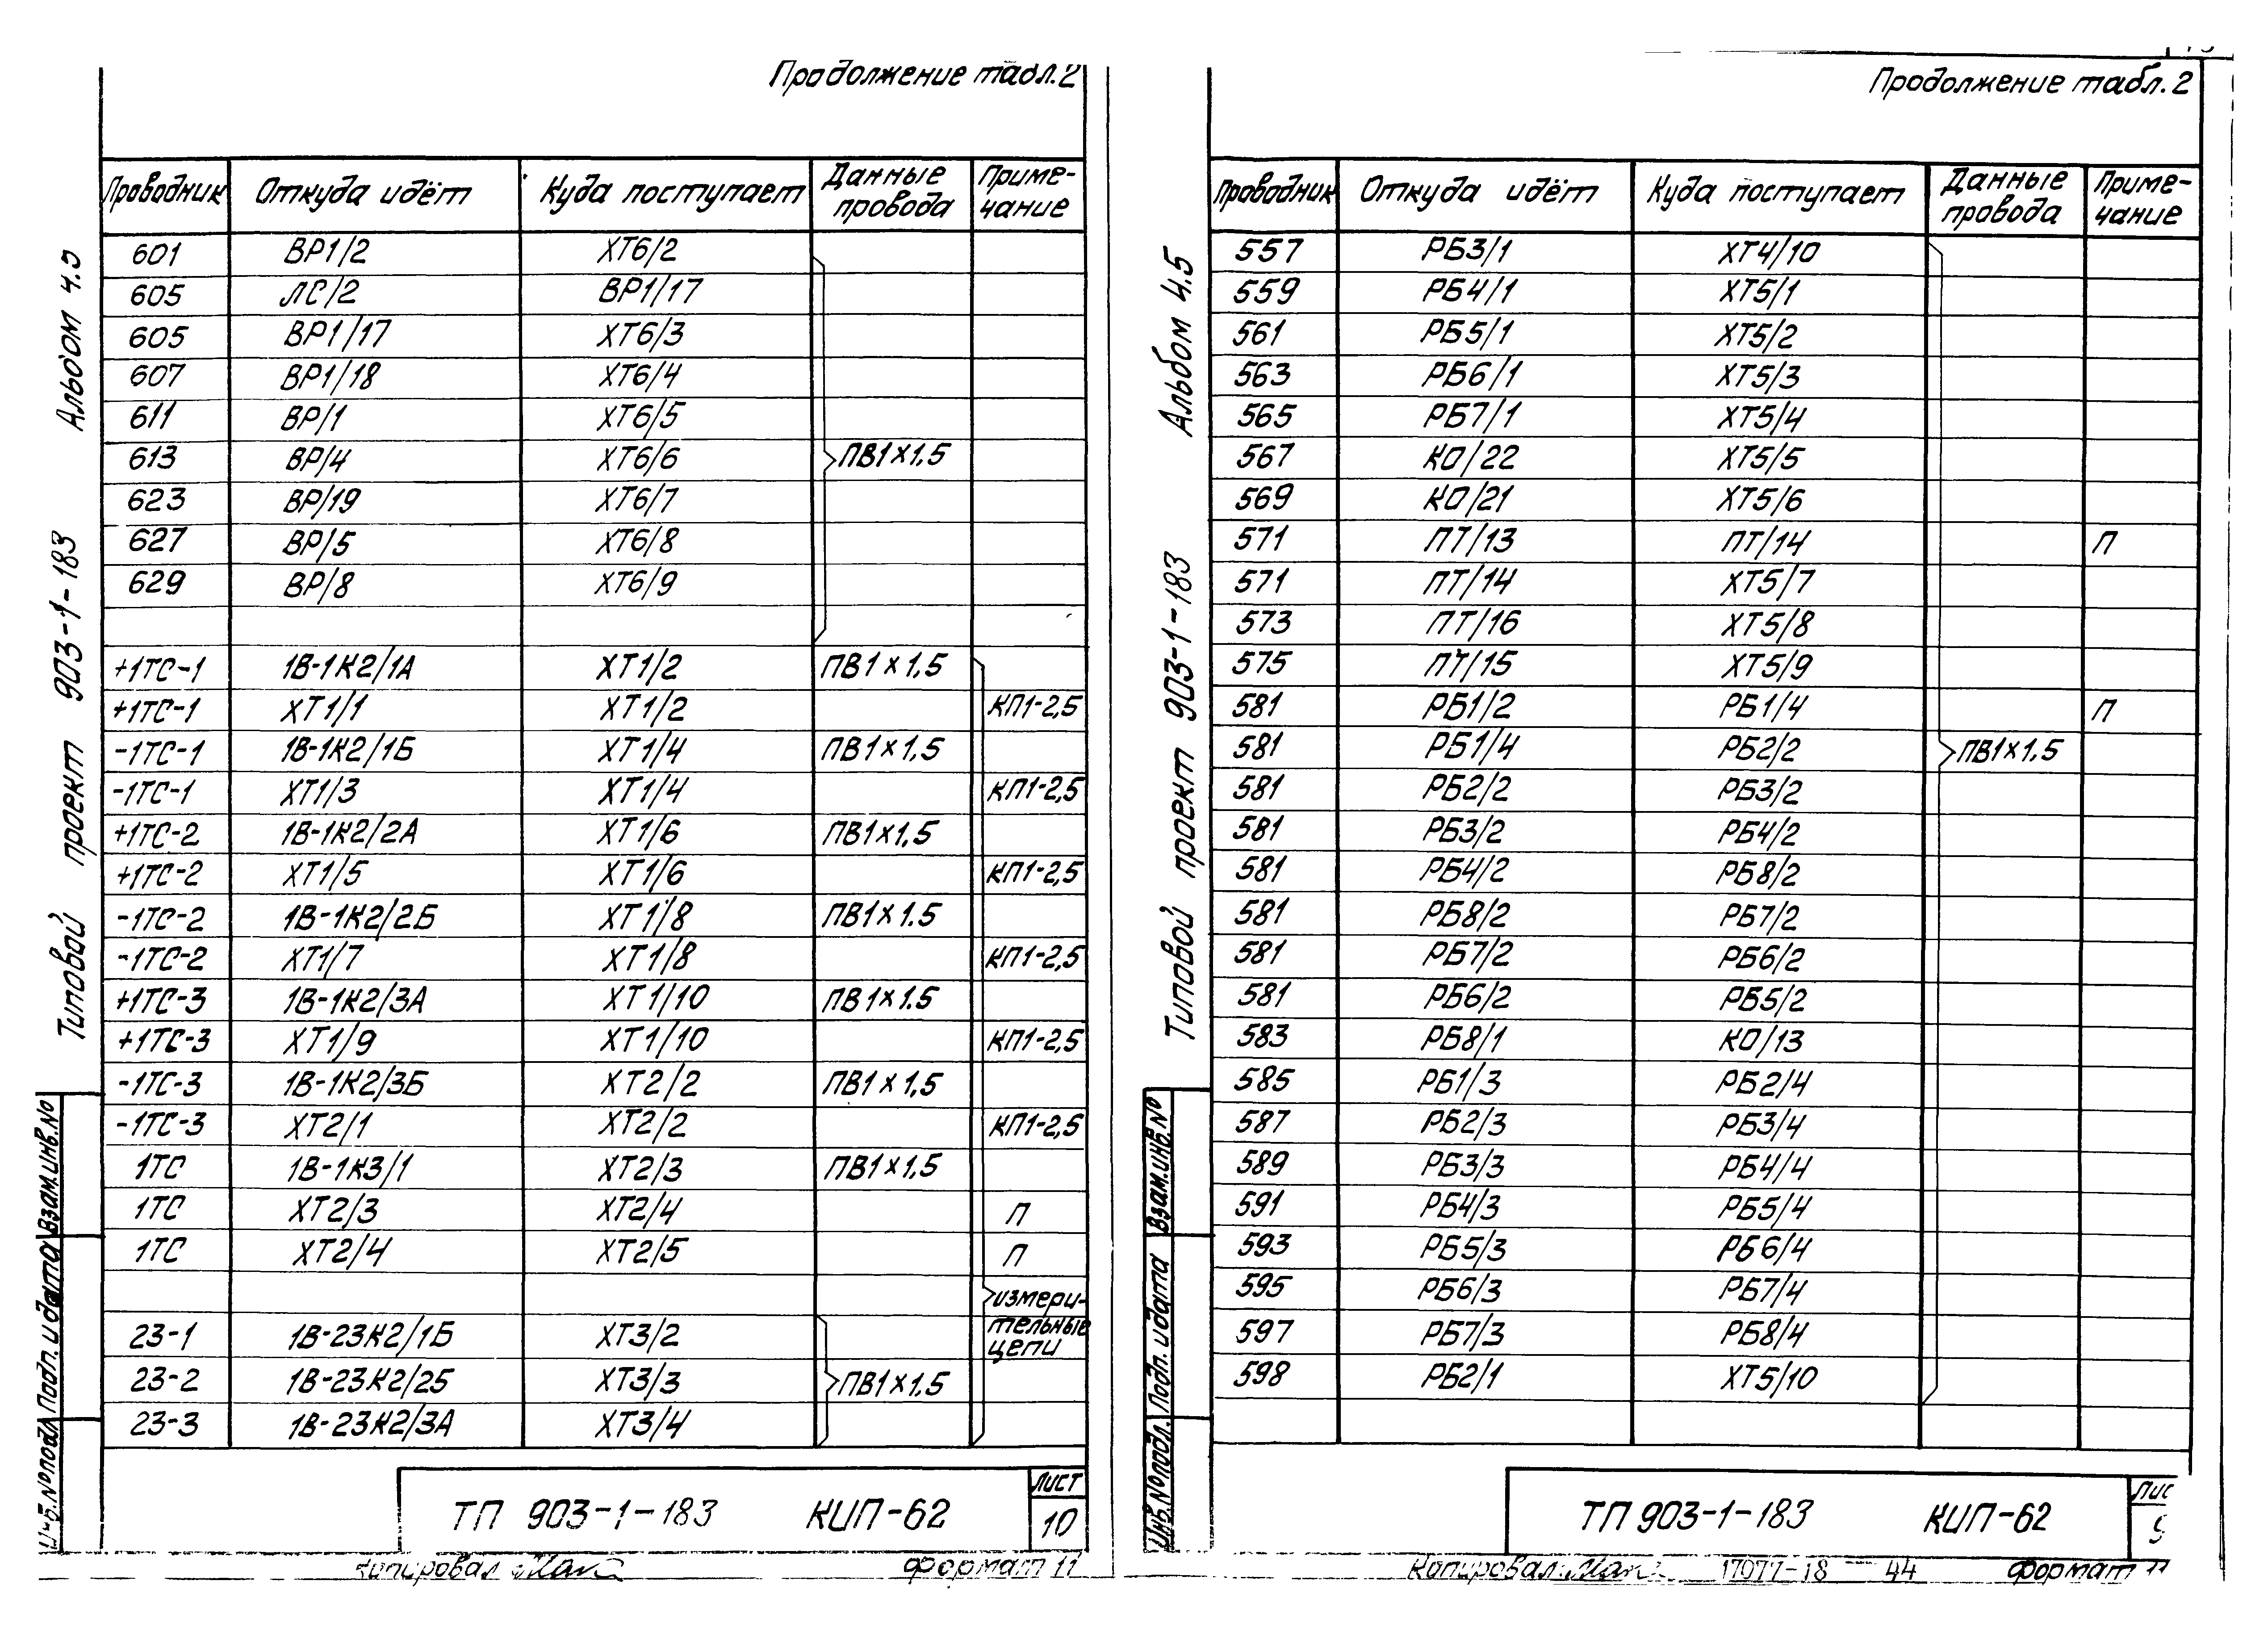 Продолжение табл.2
Проводник Откуда идёт Куда поступает Данные провода Приме-чание
601 ВР1/2 ХТ6/2
605 ЛС/2 ВР1/17
605 ВР1/17 ХТ6/3
607 ВР1/18 ХТ6/4
611 ВР/1 ХТ6/5
613 ВР/4 ХТ6/6 ПВ1×1,5
623 ВР/19 ХТ6/7
627 ВР/5 ХТ6/8
629 ВР/8 ХТ6/9
+1ТС-1 1В-1К2/1А ХТ1/2 ПВ1×1,5
+1ТС-1 ХТ1/1 ХТ1/2 КП1-2,5
-1ТС-1 1В-1К2/1Б ХТ1/4 ПВ1×1,5
-1ТС-1 ХТ1/3 ХТ1/4 КП1-2,5
+1ТС-2 1В-1К2/2А ХТ1/6 ПВ1×1,5
+1ТС-2 ХТ1/5 ХТ1/6 КП1-2,5
-1ТС-2 1В-1К2/2Б ХТ1/8 ПВ1×1.5
-1ТС-2 ХТ1/7 ХТ1/8 КП1-2,5
+1ТС-3 1В-1К2/3А ХТ1/10 ПВ1×1.5
+1ТС-3 ХТ1/9 ХТ1/10 КП1-2,5
-1ТС-3 1В-1К2/3Б ХТ2/2 ПВ1×1,5
-1ТС-3 ХТ2/1 ХТ2/2 КП1-2,5
1ТС 1В-1К3/1 ХТ2/3 ПВ1×1,5
1ТС ХТ2/3 ХТ2/4 П
1ТС ХТ2/4 ХТ2/5 П
измери-
тельные
цепи
23-1 1В-23К2/1Б ХТ3/2
23-2 1В-23К2/25 ХТ3/3 ПВ1×1,5
23-3 1В-23К2/3А ХТ3/4
ТП 903-1-183 КИП-62
Лист
10
Копировал формат 11
Типовой проект 903-1-183 Альбом
Подп. и дата Взам.инв.№
Продолжение табл.2
Проводник Откуда идёт Куда поступает Данные провода Приме-чание
557 РБ3/1 ХТ4/10
559 РБ4/1 ХТ5/1
561 РБ5/1 ХТ5/2
563 РБ6/1 ХТ5/3
565 РБ7/1 ХТ5/4
567 КО/22 ХТ5/5
569 КО/21 ХТ5/6
571 ПТ/13 ПТ/14 П
571 ПТ/14 ХТ5/7
573 ПТ/16 ХТ5/8
575 ПТ/15 ХТ5/9
581 РБ1/2 РБ1/4 П
581 РБ1/4 РБ2/2 ПВ1×1,5
581 РБ2/2 РБ3/2
581 РБ3/2 РБ4/2
581 РБ4/2 РБ8/2
581 РБ8/2 РБ7/2
581 РБ7/2 РБ6/2
581 РБ6/2 РБ5/2
583 РБ8/1 КО/13
585 РБ1/3 РБ2/4
587 РБ2/3 РБ3/4
589 РБ3/3 РБ4/4
591 РБ4/3 РБ5/4
593 РБ5/3 РБ6/4
595 РБ6/3 РБ7/4
597 РБ7/3 РБ8/4
598 РБ2/1 ХТ5/10
ТП 903-1-183 КИП-62
9
Копировал: 17077-18 44 формат 11
Типовой проект 903-1-183 Альбом 4.5
Инв.№подл. Подп. и дата Взам.инв.№